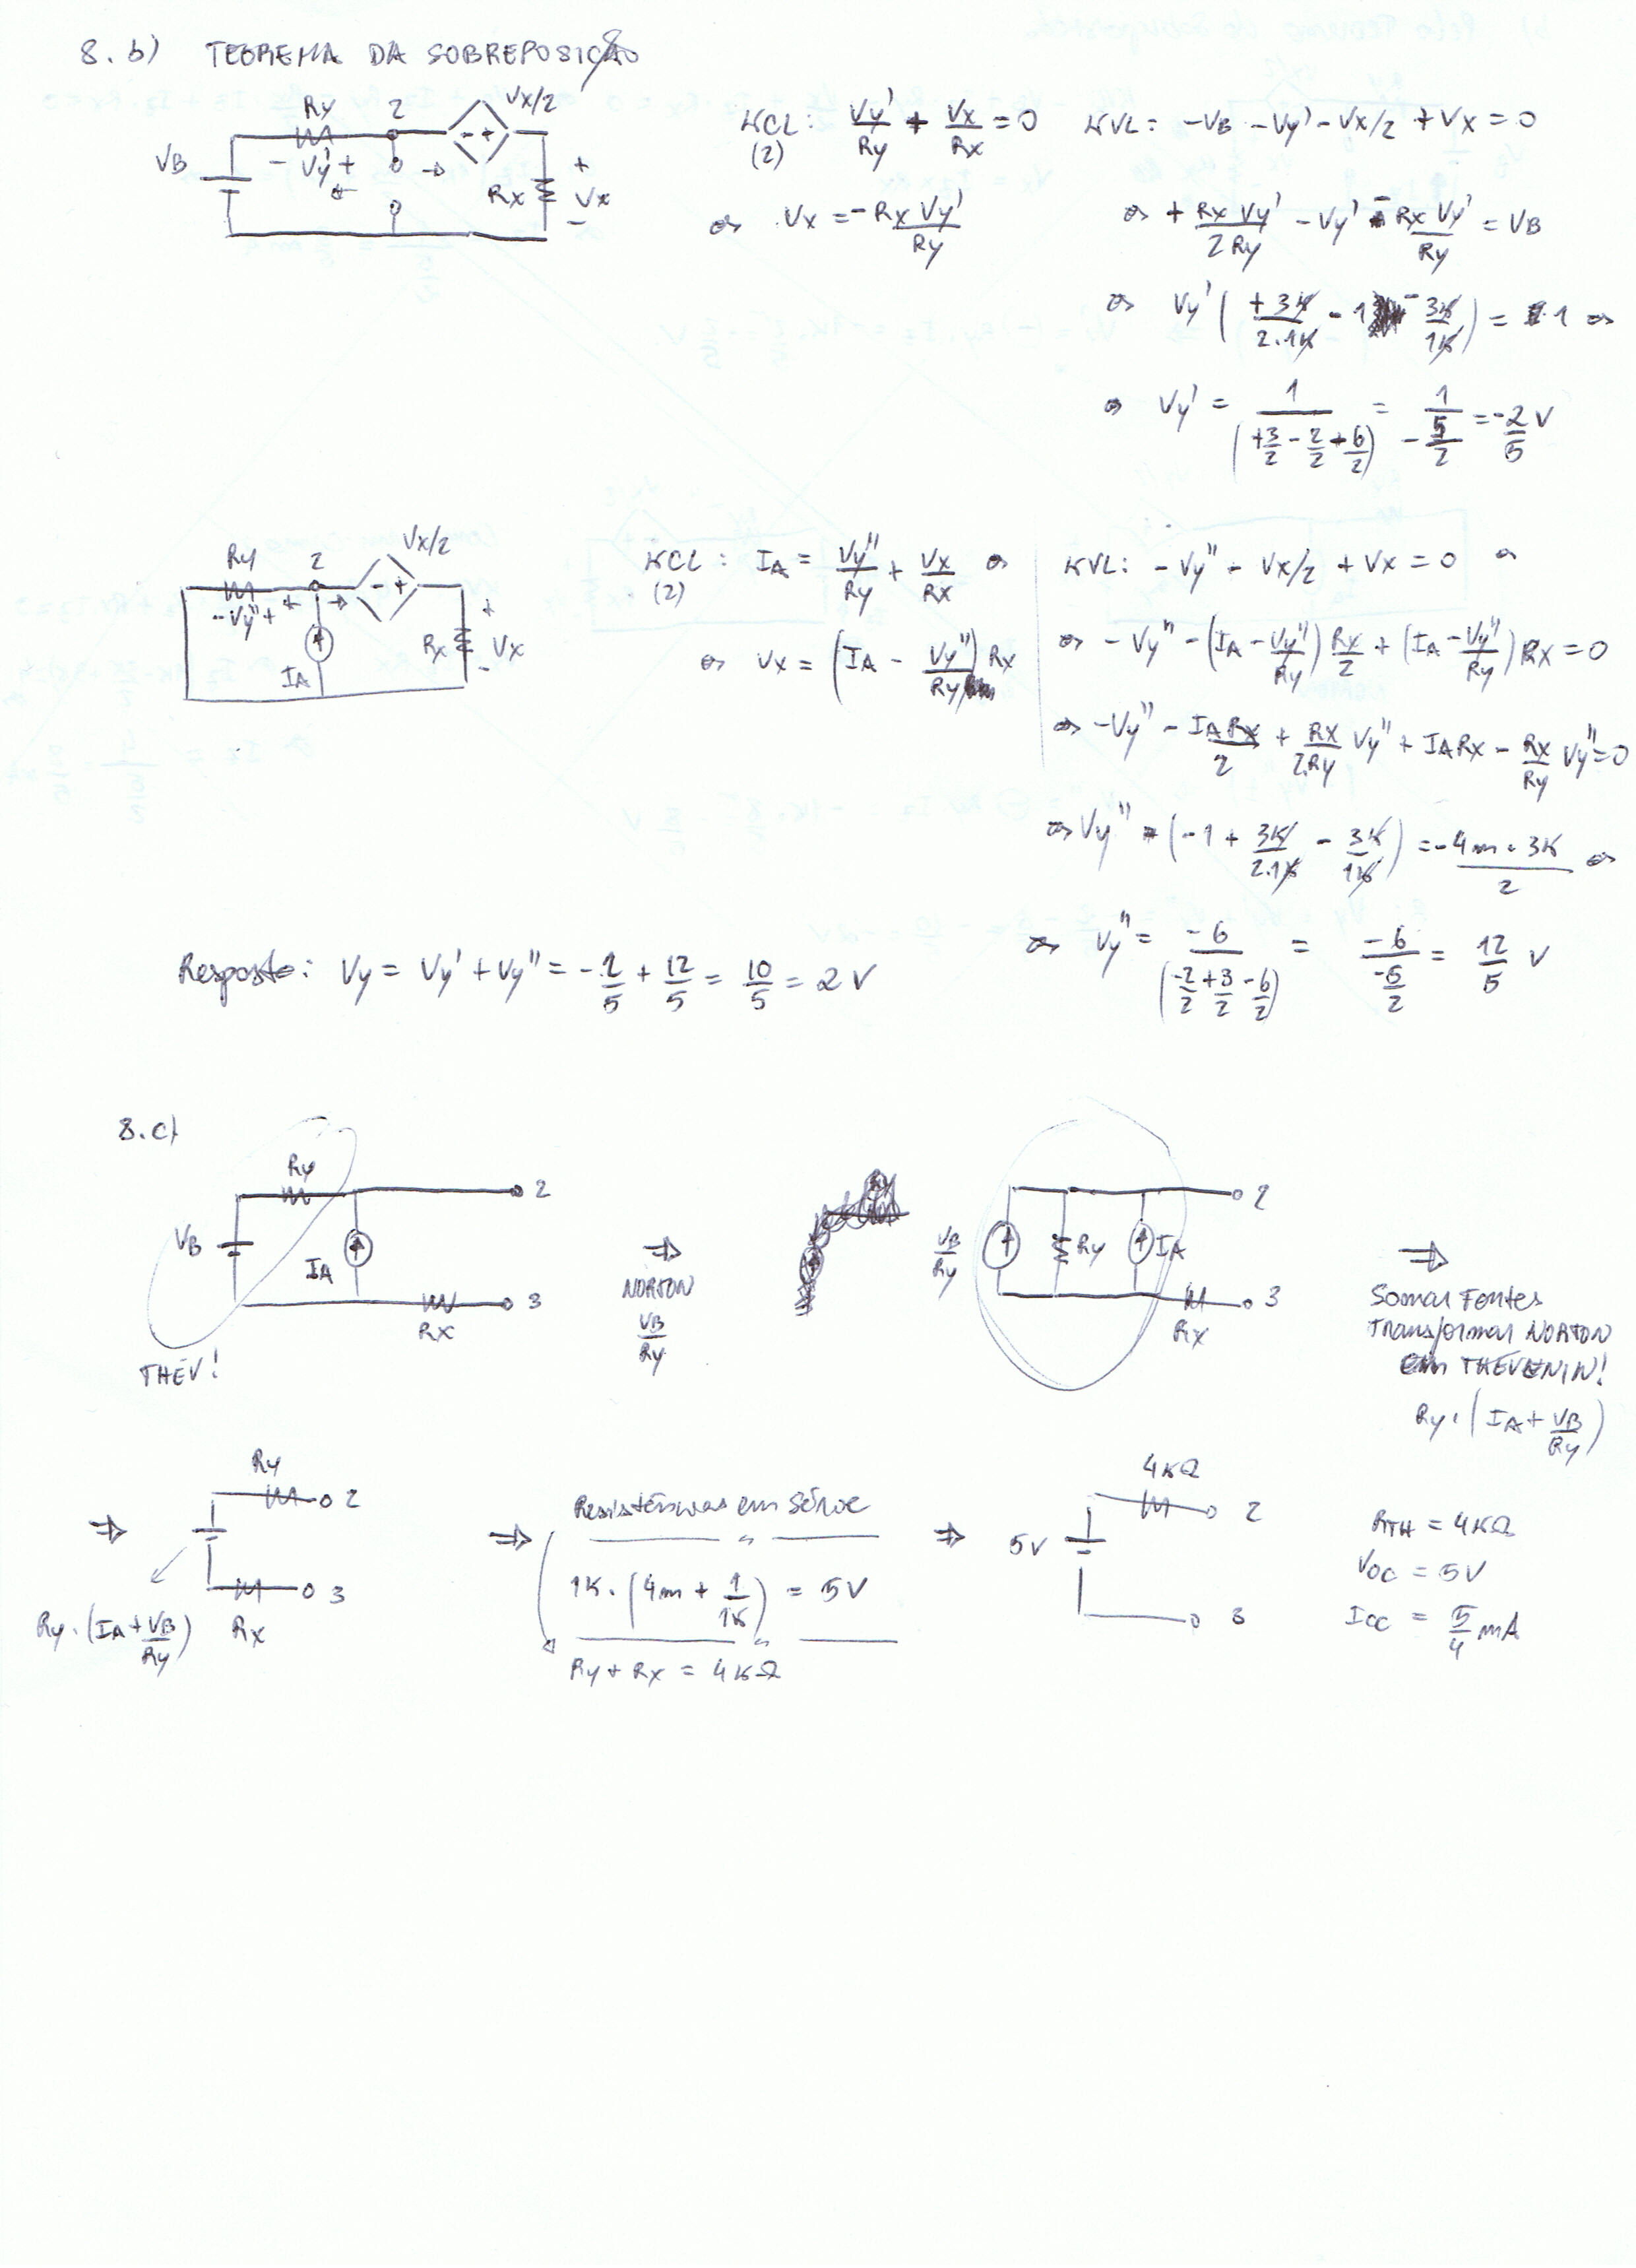 8. b) TEOREMA DA SOBREPOSIÇÃO
Ry 2 Vx/2
VB - Vy' + - + Rx + Vx -
KCL: (2) Vy'/Ry + Vx/Rx = 0
⇔ Vx = -Rx Vy'/Ry
KVL: -VB - Vy' - Vx/2 + Vx = 0
⇔ + Rx Vy'/2Ry - Vy' - Rx Vy'/Ry = VB
⇔ Vy' ( +3K/2.1K - 1 - 3K/1K ) = 1 ⇔
⇔ Vy' = 1/(+3/2 - 2/2 + 6/2) = 1/-5/2 = -2/5 V
Ry 2 Vx/2
- Vy'' + - + Rx + Vx -
IA
KCL: (2) IA = Vy''/Ry + Vx/Rx ⇔
⇔ Vx = (IA - Vy''/Ry) Rx
KVL: - Vy'' - Vx/2 + Vx = 0 ⇔
⇔ - Vy'' - (IA - Vy''/Ry) Rx/2 + (IA - Vy''/Ry) Rx = 0
⇔ -Vy'' - IA Rx/2 + Rx/2.Ry Vy'' + IA Rx - Rx/Ry Vy'' = 0
⇔ Vy'' (-1 + 3K/2.1K - 3K/1K) = -4m . 3K/2 ⇔
⇔ Vy'' = -6/(-2/2 + 3/2 - 6/2) = -6/-5/2 = 12/5 V
Resposta: Vy = Vy' + Vy'' = -2/5 + 12/5 = 10/5 = 2 V
8. c)
Ry 2
VB IA
Rx 3
THÉV!
⇒
NORTON
VB/Ry
VB/Ry Ry IA 2
Rx 3
⇒
Somar Fontes
Transformar NORTON
em THÉVENIN!
Ry . (IA + VB/Ry)
⇒ Ry 2
Rx 3
Ry . (IA + VB/Ry)
⇒ Resistências em Série
1K . (4m + 1/1K) = 5V
Ry + Rx = 4KΩ
⇒ 5V 4KΩ 2
3
RTH = 4KΩ
VOC = 5V
ICC = 5/4 mA